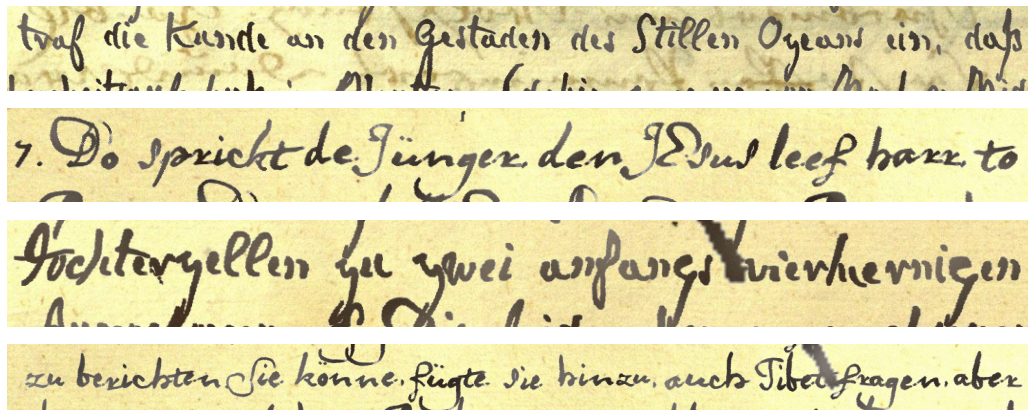 traf die Kunde an den Gestaden des Stillen Ozeans ein, daß
7. Do sprickt de Jünger, den JEsus leef harr, to
Tochterzellen zu zwei anfangs vierkernigen
zu berichten. Sie könne, fügte sie hinzu, auch Tibet fragen, aber